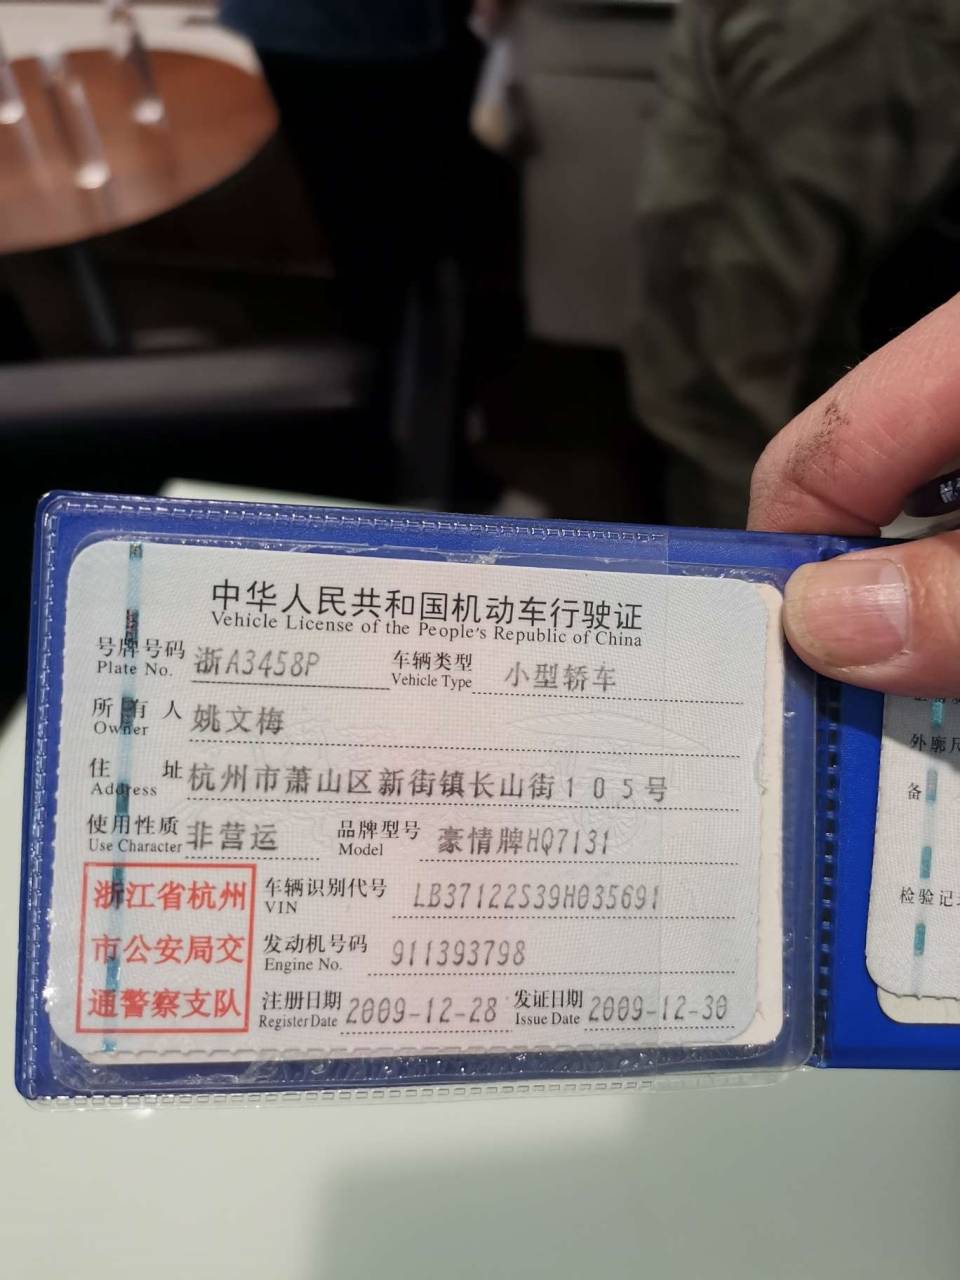 中华人民共和国机动车行驶证
Vehicle License of the People's Republic of China
号牌号码 浙A3458P 车辆类型 小型轿车
Plate No. Vehicle Type
所有人 姚文梅
Owner
住址 杭州市萧山区新街镇长山街105号
Address
使用性质 非营运 品牌型号 豪情牌HQ7131
Use Character Model
浙江省杭州
市公安局交
通警察支队
车辆识别代号 LB37122S39H035691
VIN
发动机号码 911393798
Engine No.
注册日期 2009-12-28 发证日期 2009-12-30
Register Date Issue Date
外廓尺
备
检验记